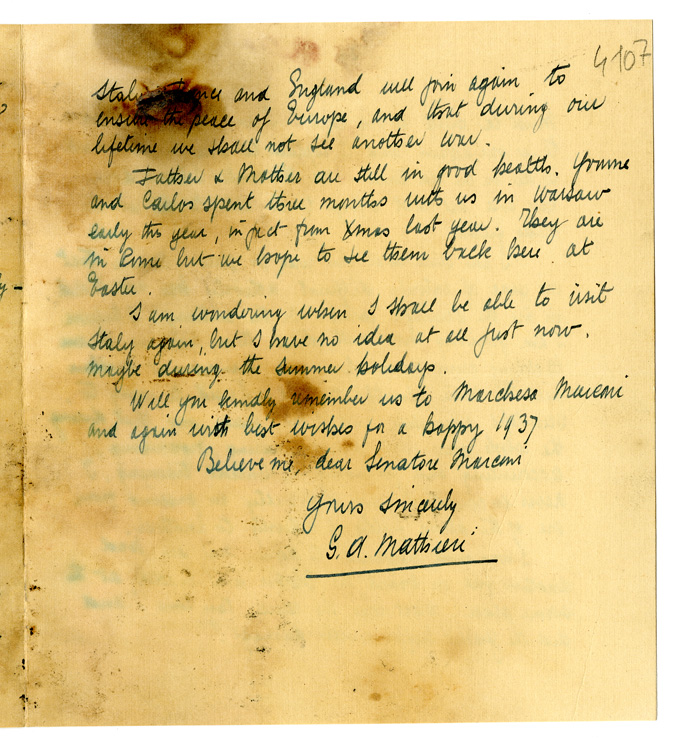 4107
Italy, France and England will join again to
ensure the peace of Europe, and that during our
lifetime we shall not see another war.
Father & Mother are still in good health. Yvonne
and Carlos spent three months with us in Warsaw
early this year, in fact from Xmas last year. They are
in Rome but we hope to see them back here at
Easter.
I am wondering when I shall be able to visit
Italy again, but I have no idea at all just now.
Maybe during the summer holidays.
Will you kindly remember us to Marchesa Marconi
and again with best wishes for a happy 1937
Believe me, dear Senatore Marconi
Yours sincerely
G. A. Mathieu